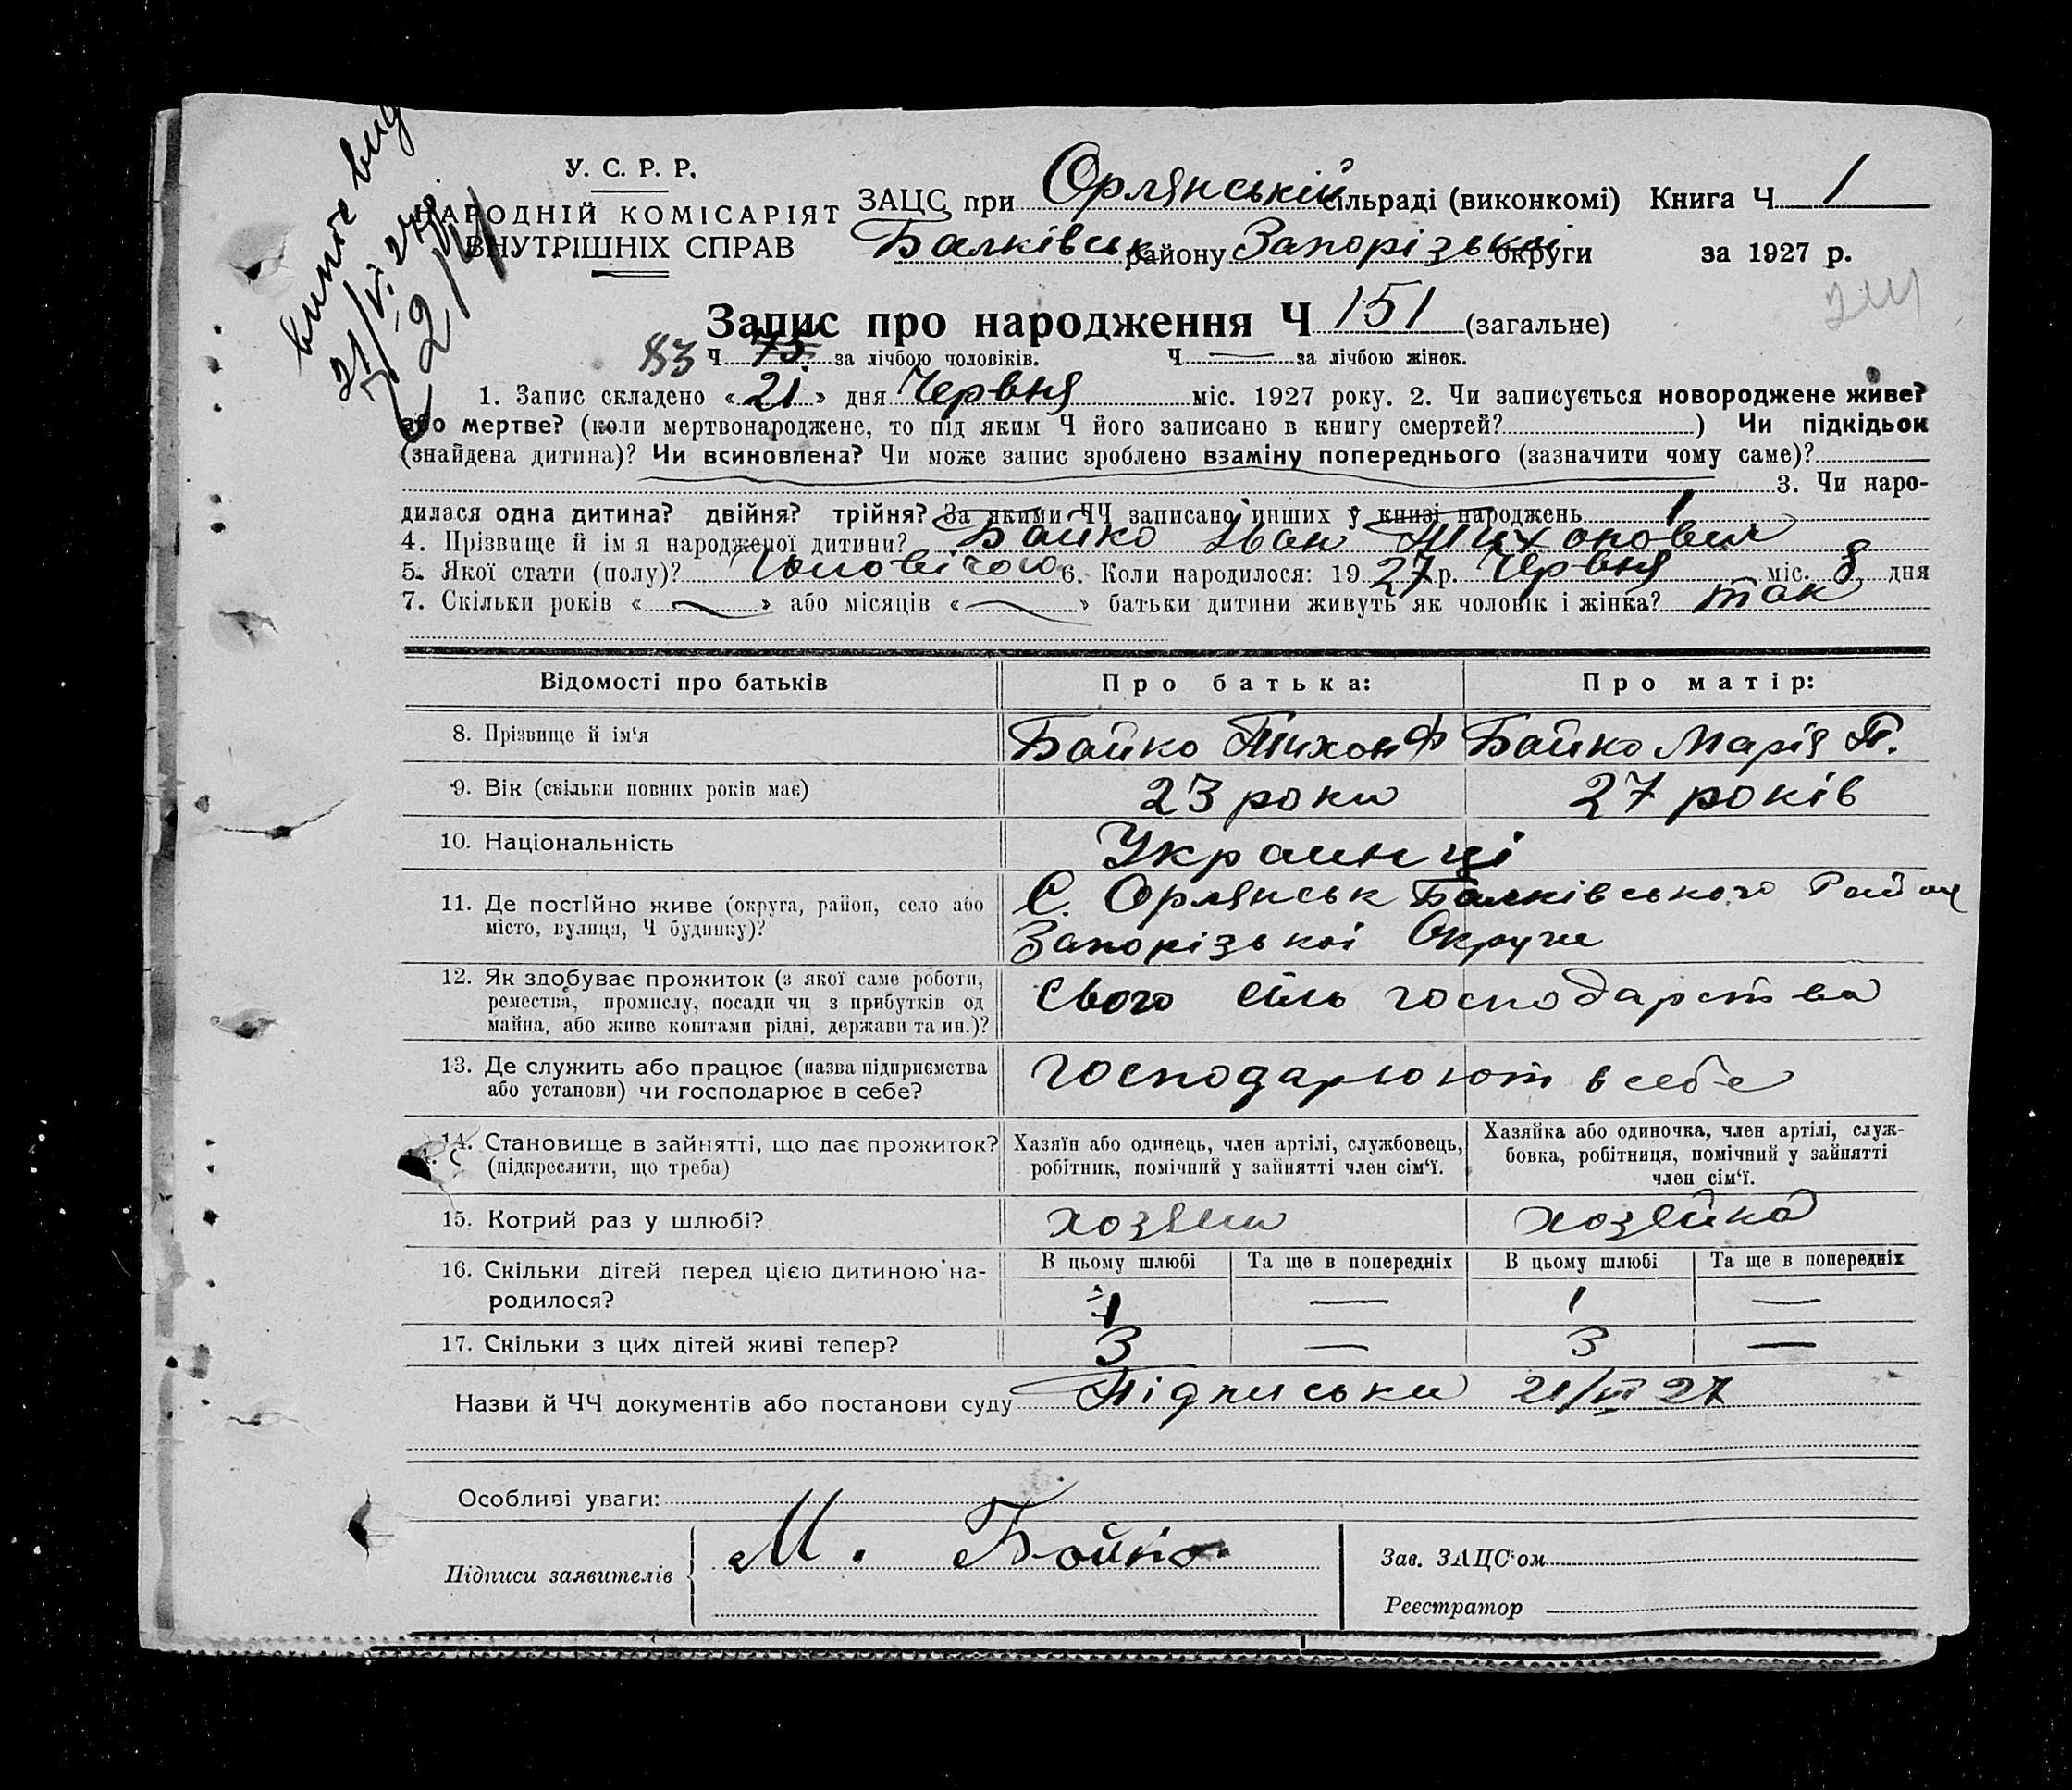 випис вид
21/VI 27р.
У. С. Р. Р.
НАРОДНІЙ КОМІСАРІЯТ
ВНУТРІШНІХ СПРАВ
ЗАЦС при Орлянській сільраді (виконкомі) Книга Ч 1
Балківськ району Запорізької округи за 1927 р.
Запис про народження Ч 151 (загальне)
83 Ч 75 за лічбою чоловіків. Ч — за лічбою жінок.
1. Запис складено « 21 » дня Червня міс. 1927 року. 2. Чи записується новороджене живе?
або мертве? (коли мертвонароджене, то під яким Ч його записано в книгу смертей? ) Чи підкідьок
(знайдена дитина)? Чи всиновлена? Чи може запис зроблено взаміну попереднього (зазначити чому саме)?
3. Чи наро-
дилася одна дитина? двійня? трійня? За якими ЧЧ записано инших у книзі народжень 1
4. Прізвище й ім я народженої дитини? Байко Іван Тихонович
5. Якої стати (полу)? Чоловічою 6. Коли народилося: 1927 р. Червня міс. 8 дня
7. Скільки років « — » або місяців « — » батьки дитини живуть як чоловік і жінка? так
Відомості про батьків Про батька: Про матір:
8. Прізвище й ім‘я Байко Тихон Ф Байко Марія П.
9. Вік (скільки повних років має) 23 роки 27 років
10. Національність Украинці
11. Де постійно живе (округа, район, село або С. Орлянськ Балківського Району
місто, вулиця, Ч будинку)? Запорізької Округи
12. Як здобуває прожиток (з якої саме роботи,
ремества, промислу, посади чи з прибутків од Свого сіль господарства
майна, або живе коштами рідні, держави та ин.)?
13. Де служить або працює (назва підприємства господарюют в себе
або установи) чи господарює в себе?
14. Становище в зайнятті, що дає прожиток? Хазяїн або одинець, член артілі, службовець, Хазяйка або одиночка, член артілі, служ-
(підкреслити, що треба) робітник, помічний у зайнятті член сім‘ї. бовка, робітниця, помічний у зайнятті
член сім‘ї.
15. Котрий раз у шлюбі? хозяин хозяйка
16. Скільки дітей перед цією дитиною на- В цьому шлюбі Та ще в попередніх В цьому шлюбі Та ще в попередніх
родилося? 1 — 1 —
17. Скільки з цих дітей живі тепер? 3 — 3 —
Назви й ЧЧ документів або постанови суду Підписьки 21/VI 27
Особливі уваги:
Підписи заявителів М. Бойко.
Зав. ЗАЦС‘ом
Реєстратор